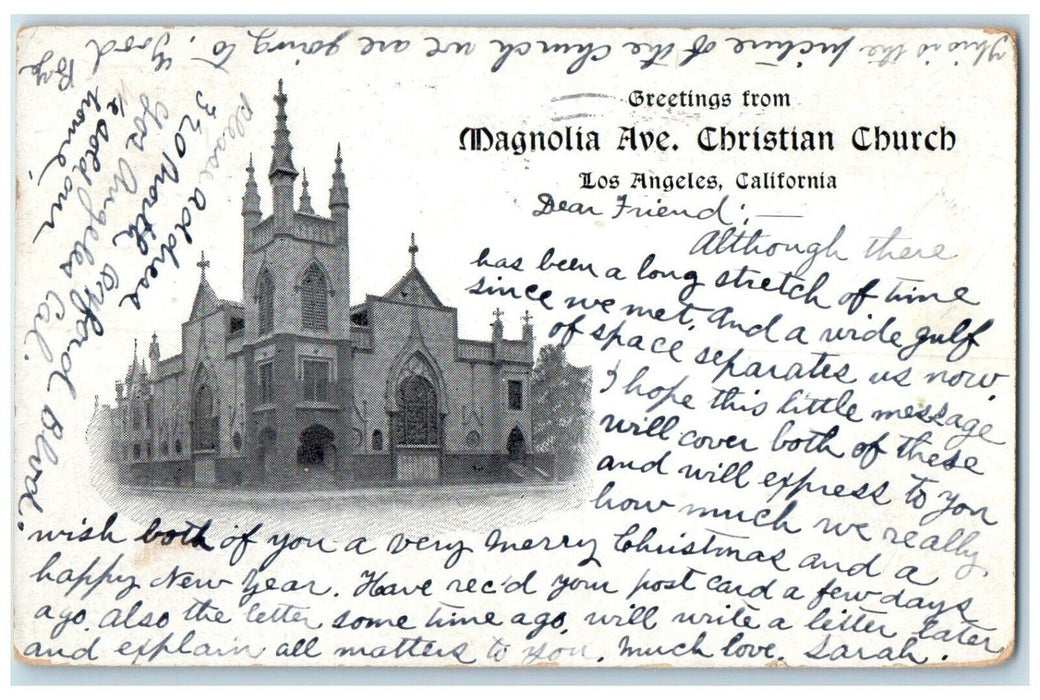 Greetings from
Magnolia Ave. Christian Church
Los Angeles, California
Dear Friend; —
Although there
has been a long stretch of time
since we met, and a wide gulf
of space separates us now,
I hope this little message
will cover both of these
and will express to you
how much we really
wish both of you a very merry Christmas and a
happy New Year. Have rec'd your post card a few days
ago. also the letter some time ago, will write a letter later
and explain all matters to you. Much love. Sarah.
This is the picture of the church we are going to, good
Bye
Please address
320 North Oxford Blvd.
Los Angeles Cal.
We sold our
home.